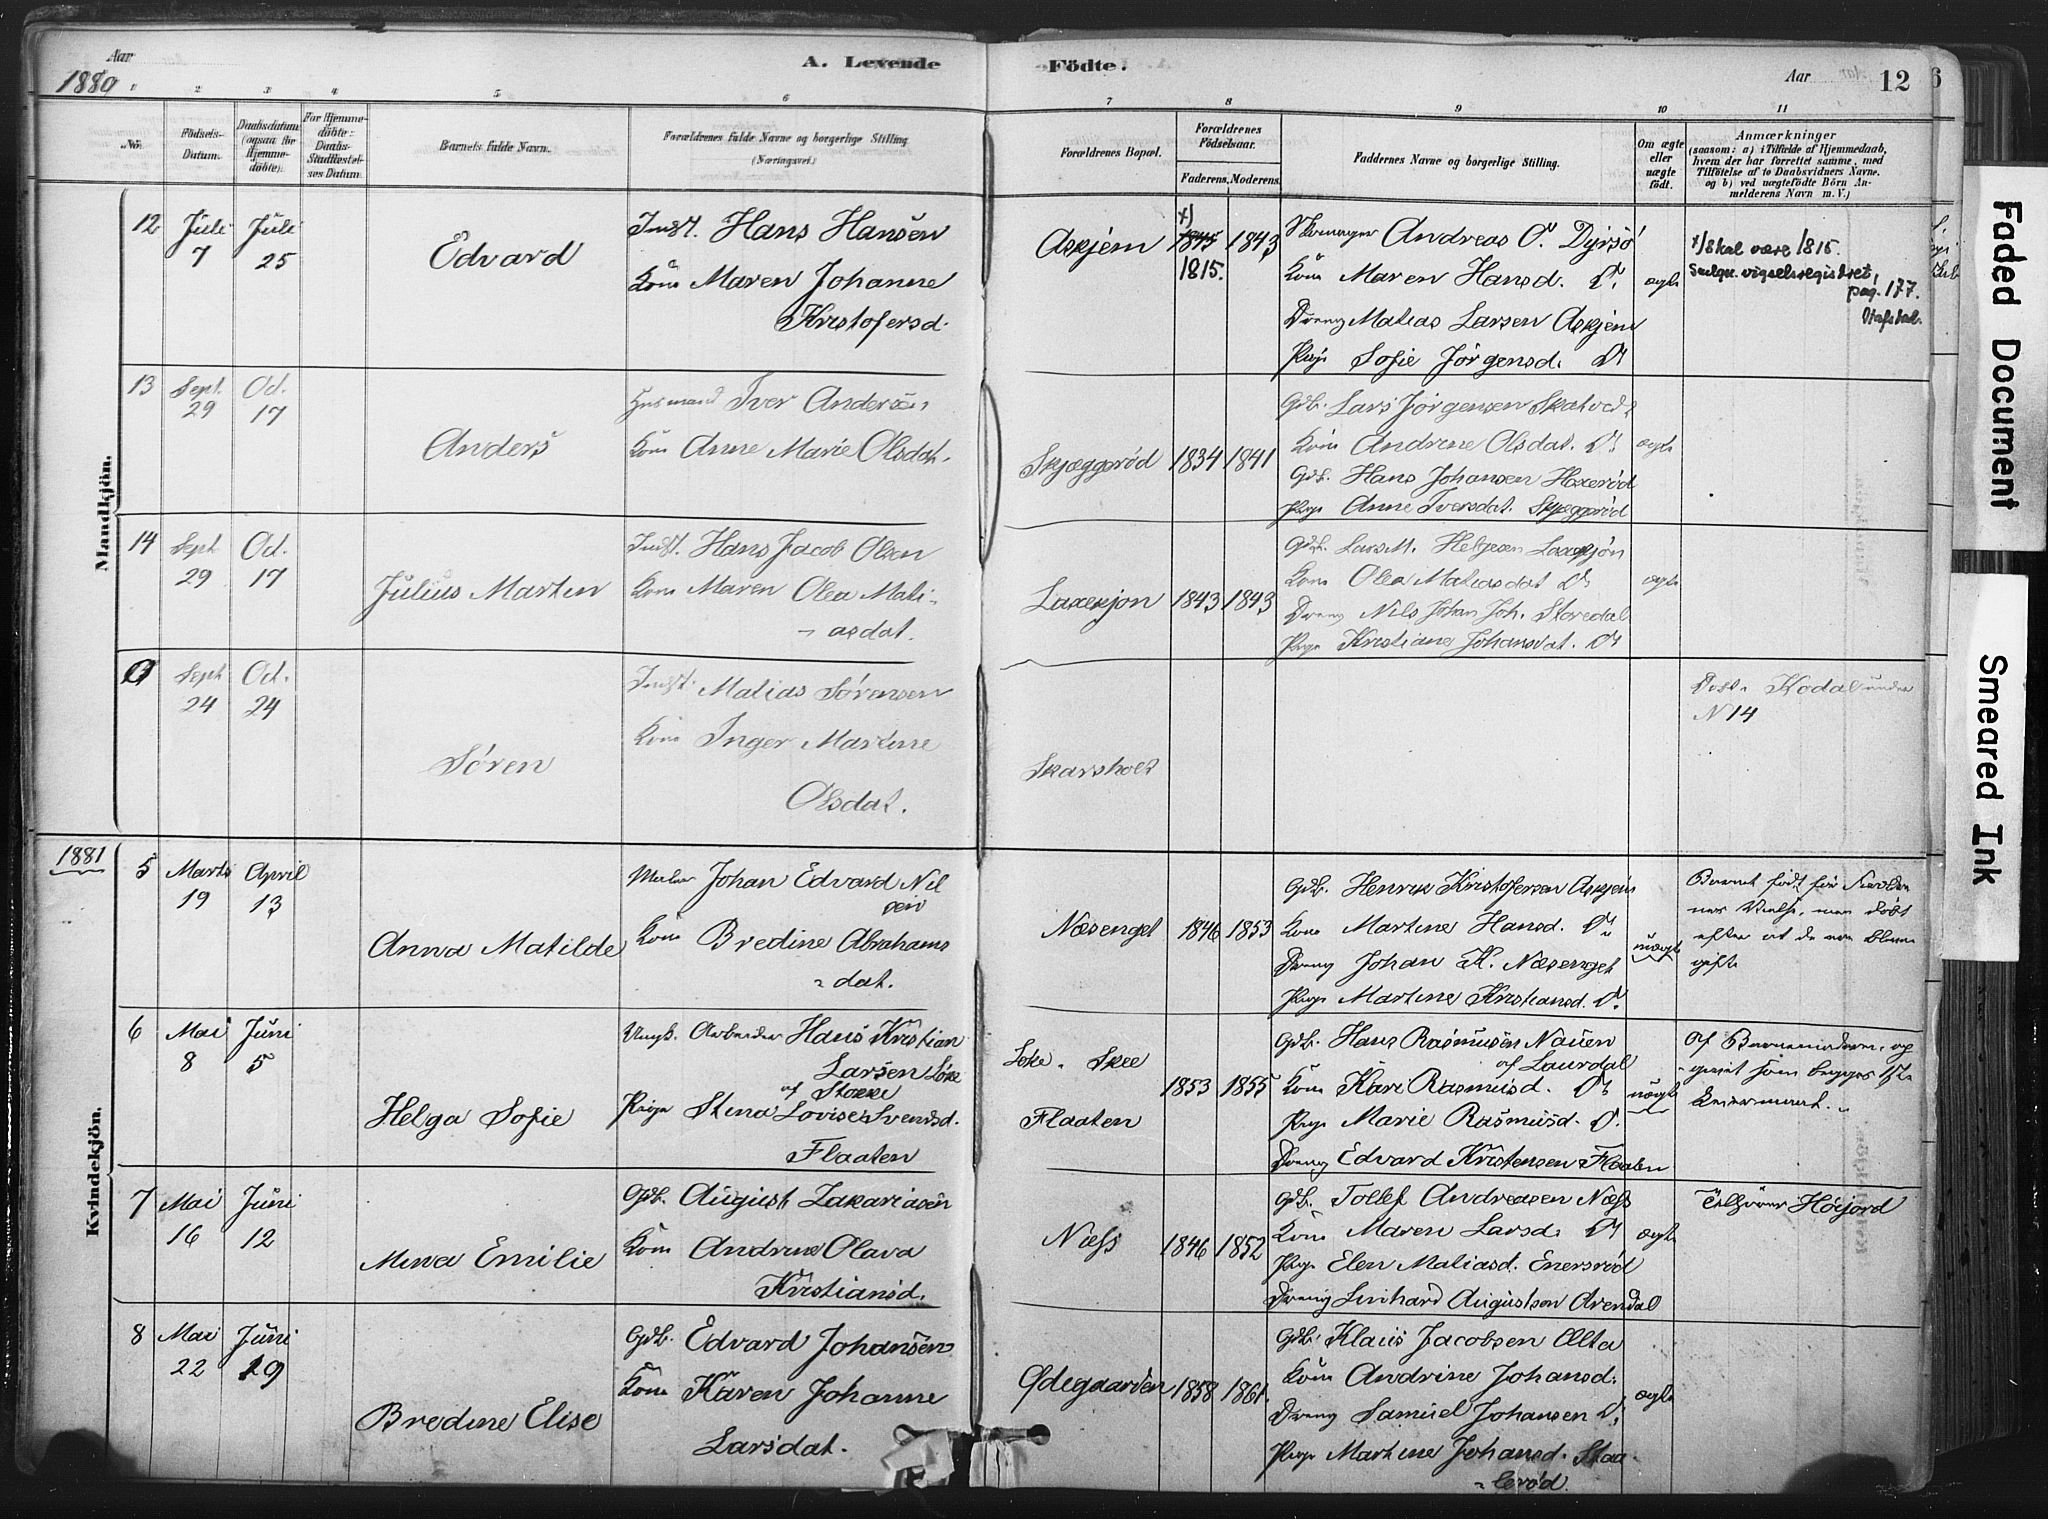 Aar
1880
A. Levende
Födte.
Aar
12
6
1 2 3 4 5 6
7 8 9 10 11
No.
Födsels-
Datum.
Daabsdatum
(ogsaa for
Hjemme-
döbte).
For Hjemme-
döbte:
Daabs-
Stadfæstel-
ses Datum.
Barnets fulde Navn.
Forældrenes fulde Navne og borgerlige Stilling
(Næringsvei.)
Forældrenes Bopæl.
Forældrenes
Födselsaar.
Faderens. Moderens.
Faddernes Navne og borgerlige Stilling.
Om ægte
eller
uægte
födt.
Anmærkninger
(saasom: a) i Tilfælde af Hjemmedaab,
hvem der har forrettet samme, med
Tilföielse af to Daabsvidners Navne.
og b) ved uægtefödte Börn An-
melderens Navn m. V.)
Mandkjön.
12
Juli
7
Juli
25
Edvard
Indst. Hans Hansen
Kone Maren Johanne
Kristofersd.
Askjem
x)
1845
1815.
1843
Andreas O. Dyrsø
Kone Maren Hansd. Do
Dreng Matias Larsen Askjem
Pige Sofie Jørgensd. Do
ægte
x) Skal være 1815.
vigselsregistret,
pag. 177.
13
Sept.
29
Oct.
17
Anders
Husmand Iver Andersen
Kone Anne Marie Olsdat.
Skjæggerød
1834
1841
Gdb. Lars Jørgensen
Kone Andrine Olsdat. Do
Gdb. Hans Johansen Haxerød
Pige Anne Iversdat. Skjæggerød
ægte
14
Sept
29
Oct.
17
Julius Martin
Indst. Hans Jacob Olsen
Kone Maren Olea Mati-
asdat.
1843
1843
Gdb. Lars M. Helgesen
Kone Olea Matiasdat Do
Dreng Nils Johan Joh. Storedal
Pige Kristiane Johansdat. Do
ægte
0
Sept
24
Oct.
24
Søren
Indst. Matias Sørensen
Kone Inger Martine
Olsdat.
Skarsholt
Kodal under
N 14
1881
Kvindekjön.
5
Marts
19
April
13
Anna Matilde
Maler Johan Edvard Nil
sen
Kone Bredine Abrahams
dat.
Næsenget
1846
1853
Gdb. Henrik Kristofersen Askjem
Kone Martine Hansd. Do
Dreng Johan K. Næsenget
Pige Martine Kristiansd. Do
uægte
Barnet født før
Vielse, men døbt
efter at de
gifte
6
Mai
8
Juni
5
Helga Sofie
Ungk. Arbeider Hans Kristian
Larsen Løke
af Stokke
Pige Stina Lovise Svendsd.
Flaaten
Løke. Skee
Flaaten
1853
1855
Gdb. Hans Rasmusen Nauen
af Laurdal
Kone Kari Rasmusd. Do
Pige Marie Rasmusd. Do
Dreng Edvard Kristensen Flaaten
uægte
Af Barnemoderen. op
givet som begges 1ste
Leiermaal.
7
Mai
16
Juni
12
Mina Emilie
Gdb. August Zakariasen
Kone Andrine Olava
Kristiansd.
Næss
1846
1852
Gdb. Tollef Andreasen Næss
Kone Maren Larsd. Do
Pige Elen Matiasd. Enersrød
Dreng Linhard Augustson Arendal
ægte
Høijord
8
Mai
22
Juni
19
Bredine Elise
Gdb. Edvard Johansen
Kone Karen Johanne
Larsdat.
Ødegaarden
1858
1861.
Gdb. Klaus Jacobsen
Kone Andrine Johansd.
Dreng Samuel Johansen Do
Pige Martine Johansd. Staa-
lerød.
ægte
Faded Document
Smeared Ink